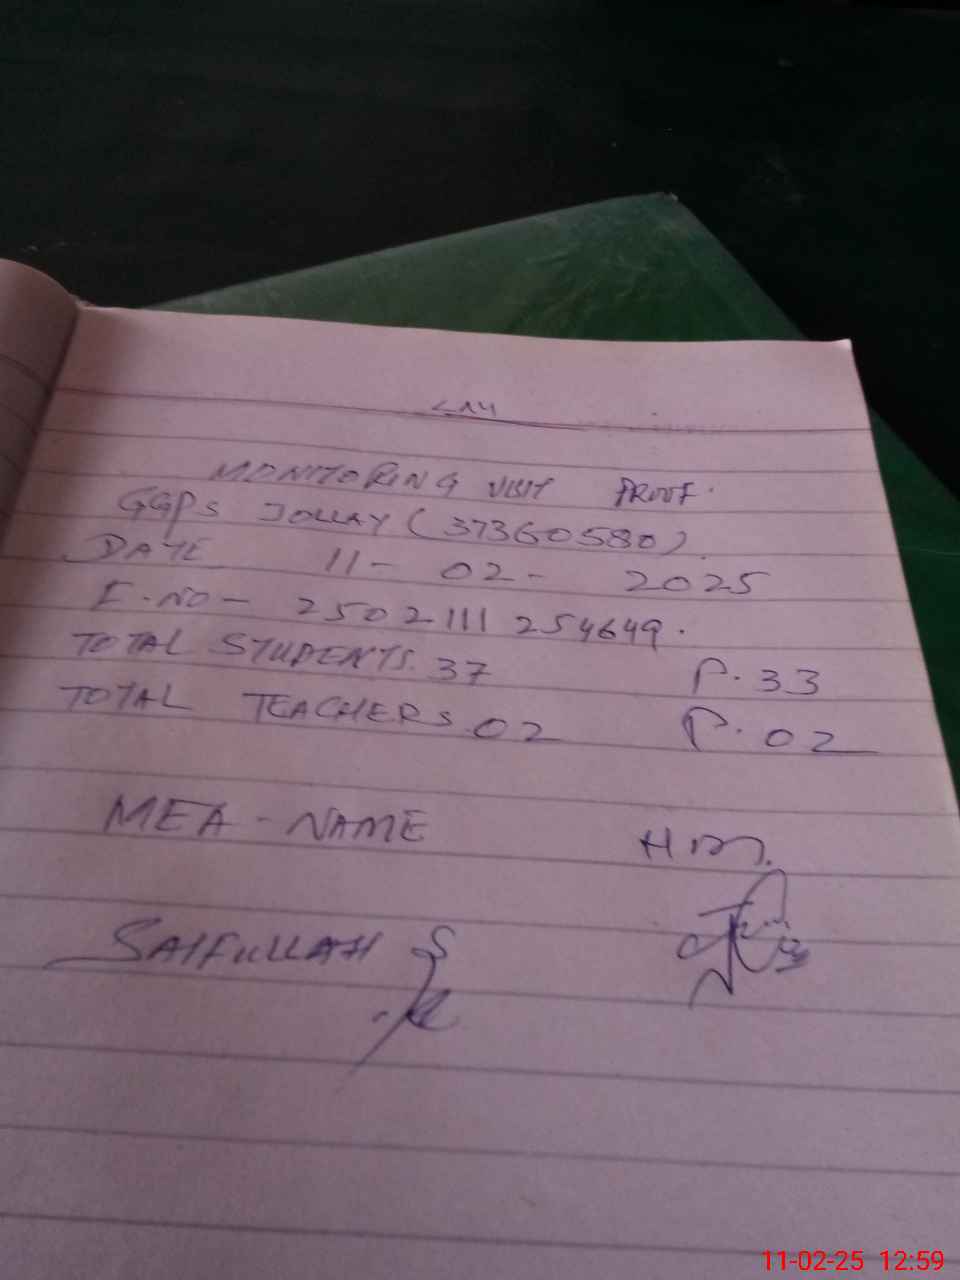 MONITORING VISIT PROOF.
GGPS JOLLAY (37360580).
DATE 11- 02- 2025
E.NO- 2502111254649.
TOTAL STUDENTS. 37 P. 33
TOTAL TEACHERS. 02 P. 02
MEA - NAME H.M.
SAIFULLAH
11-02-25 12:59